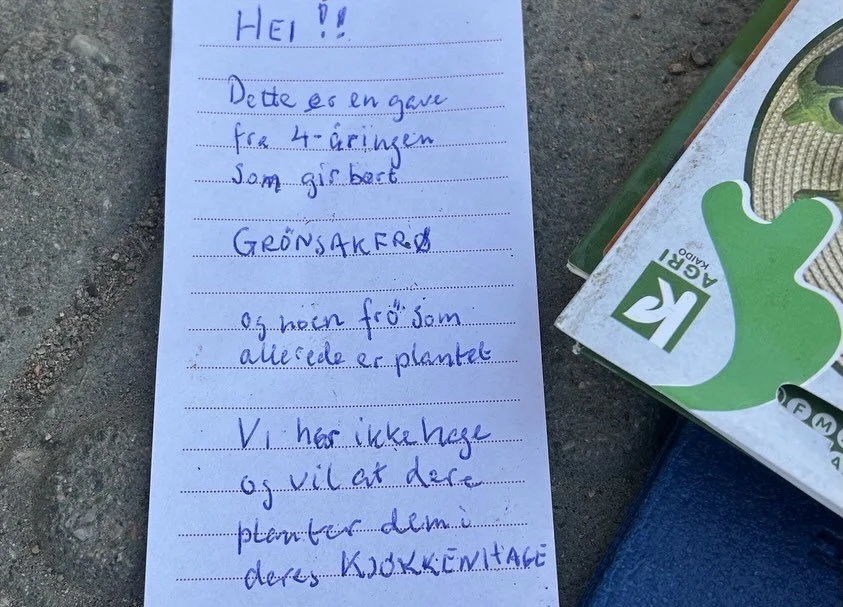 HEI !!
Dette er en gave
fra 4-åringen
som gir bort
GRÖNSAKFRØ
og noen frö som
allerede er plantet
Vi har ikke hage
og vil at dere
planter dem i
deres KJØKKENHAGE
AGRI
KAIDO
F M